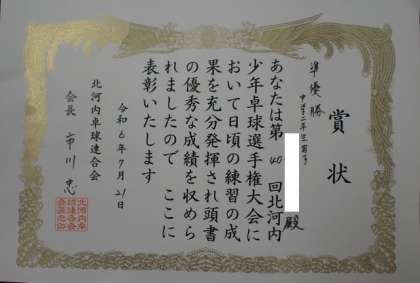 賞状
準優勝
中学二年生男子
殿
あなたは第40回北河内
少年卓球選手権大会に
おいて日頃の練習の成
果を充分発揮され頭書
の優秀な成績を収めら
れましたので ここに
表彰いたします
令和6年7月21日
北河内卓球連合会
会長 市川 忠